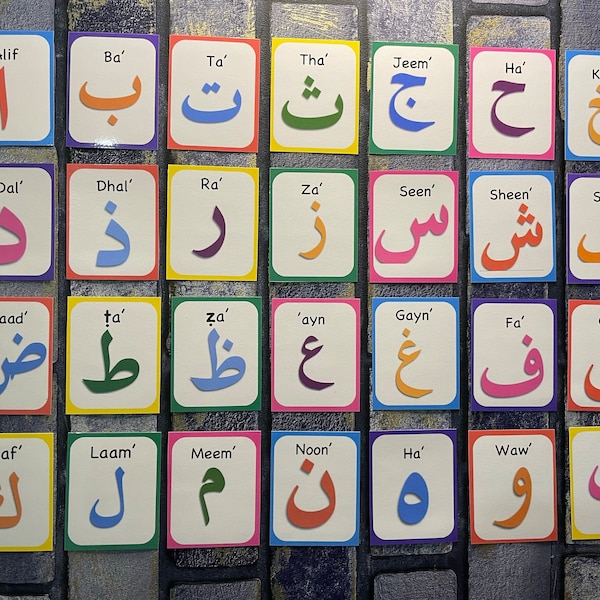 lif
ا
Ba’
ب
Ta’
ت
Tha’
ث
Jeem’
ج
Ha’
ح
K
Dal’
د
Dhal’
ذ
Ra’
ر
Za’
ز
Seen’
س
Sheen’
ش
S
aad’
ض
ṭa’
ط
ẓa’
ظ
’ayn
ع
Gayn’
غ
Fa’
ف
af’
ك
Laam’
ل
Meem’
م
Noon’
ن
Ha’
ه
Waw’
و